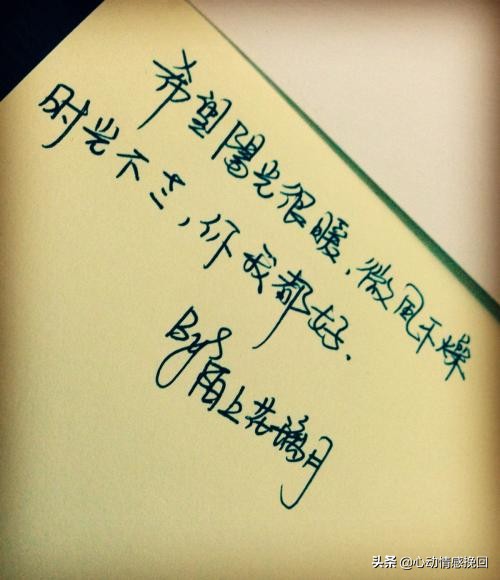 希望陽光很暖、微風不燥
时光不老，你我都好.
By: 陌上花璃月
头条 @心动情感挽回